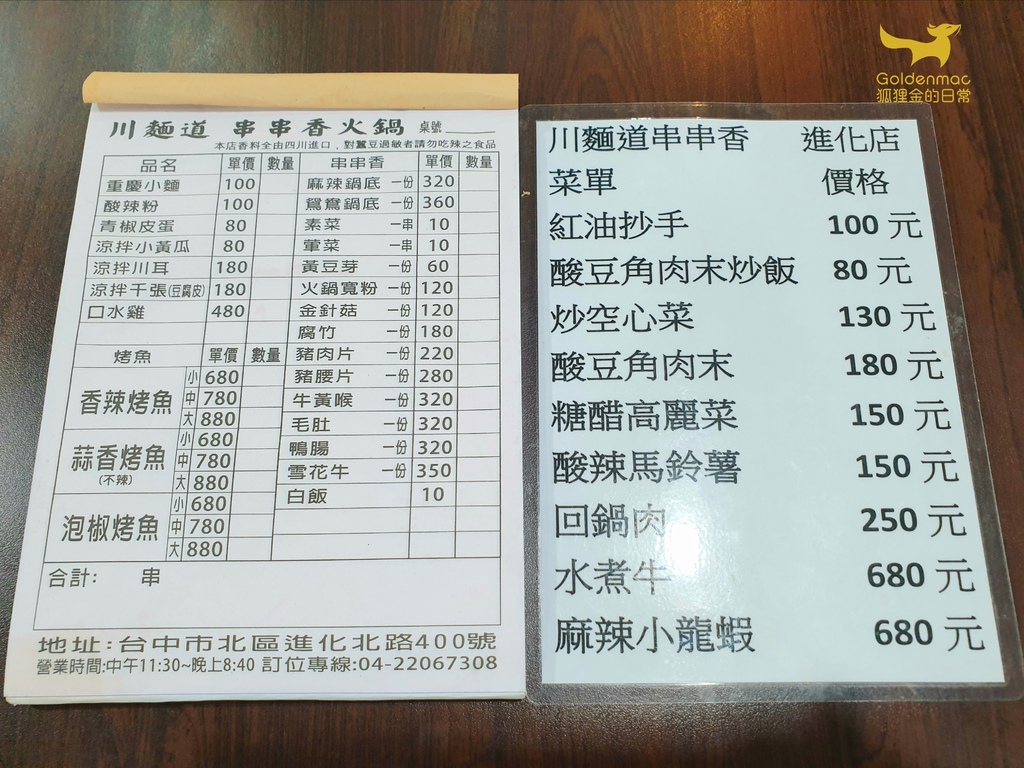 Goldenmac
狐狸金的日常
川麵道 串串香火鍋 桌號
本店香料全由四川進口,對蠶豆過敏者請勿吃辣之食品
品名 單價 數量 串串香 單價 數量
重慶小麵 100 麻辣鍋底 一份 320
酸辣粉 100 鴛鴦鍋底 一份 360
青椒皮蛋 80 素菜 一串 10
涼拌小黃瓜 80 葷菜 一串 10
涼拌川耳 180 黃豆芽 一份 60
涼拌千張(豆腐皮) 180 火鍋寬粉 一份 120
口水雞 480 金針菇 一份 120
腐竹 一份 180
烤魚 單價 數量 豬肉片 一份 220
香辣烤魚 小 680 豬腰片 一份 280
中 780 牛黃喉 一份 320
大 880 毛肚 一份 320
蒜香烤魚 (不辣) 小 680 鴨腸 一份 320
中 780 雪花牛 一份 350
大 880 白飯 10
泡椒烤魚 小 680
中 780
大 880
合計: 串
地址:台中市北區進化北路400號
營業時間:中午11:30~晚上8:40 訂位專線:04-22067308
川麵道串串香 進化店
菜單 價格
紅油抄手 100 元
酸豆角肉末炒飯 80 元
炒空心菜 130 元
酸豆角肉末 180 元
糖醋高麗菜 150 元
酸辣馬鈴薯 150 元
回鍋肉 250 元
水煮牛 680 元
麻辣小龍蝦 680 元